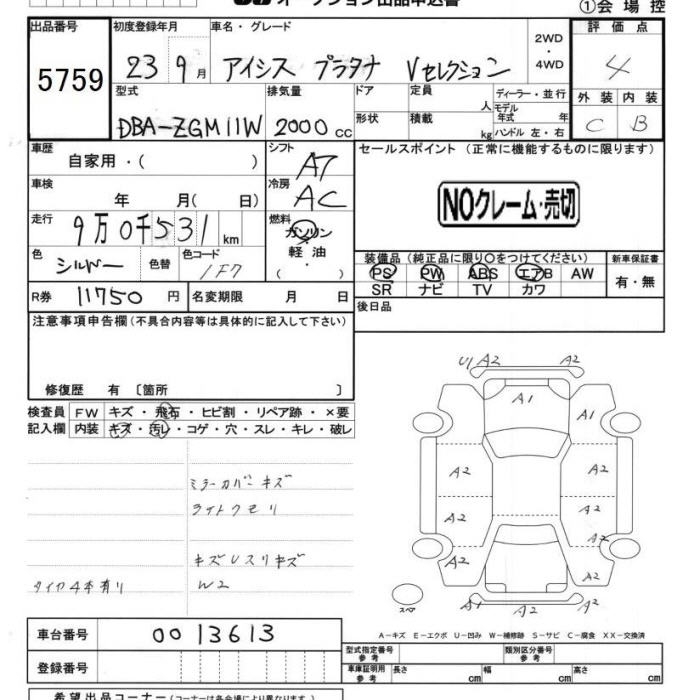 オークション出品申込書
①会場控
出品番号 初度登録年月 車名・グレード 評価点
5759 23 9月 アイシス プラタナ Vセレクション 2WD・4WD 4
型式 排気量 ドア 定員 人 ディーラー・並行 外装 内装
DBA-ZGM11W 2000cc 形状 積載 kg モデル年式 年 ハンドル 左・右 C B
車歴 自家用・( ) シフト AT セールスポイント(正常に機能するものに限ります)
車検 年 月( 日) 冷房 AC NOクレーム・売切
走行 9万0千531km 燃料 ガソリン・軽油・( )
色 シルバー 色替 色コード 1F7 装備品(純正品に限り○をつけてください) 新車保証書
PS PW ABS エアB AW 有・無
R券 11750円 名変期限 月 日 SR ナビ TV カワ
注意事項申告欄(不具合内容等は具体的に記入して下さい) 後日品
修復歴 有 〔箇所 〕
検査員 FW キズ・飛石・ヒビ割・リペア跡・×要
記入欄 内装 キズ・汚レ・コゲ・穴・スレ・キレ・破レ
U1 A2 A2
A1
A1
A2 A2
A2 A2
A2 A2
A2
A1 A2 A2
スペア
ミラーカバーキズ
ライトクモリ
キズUスリキズ
タイヤ4本有り W2
A-キズ E-エクボ U-凹み W-補修跡 S-サビ C-腐食 XX-交換済
車台番号 0013613 型式指定番号 参考 類別区分番号 参考
登録番号 車庫証明用 参考 長さ cm 幅 cm 高さ cm
希望出品コーナー(コーナーは各会場により異なります)